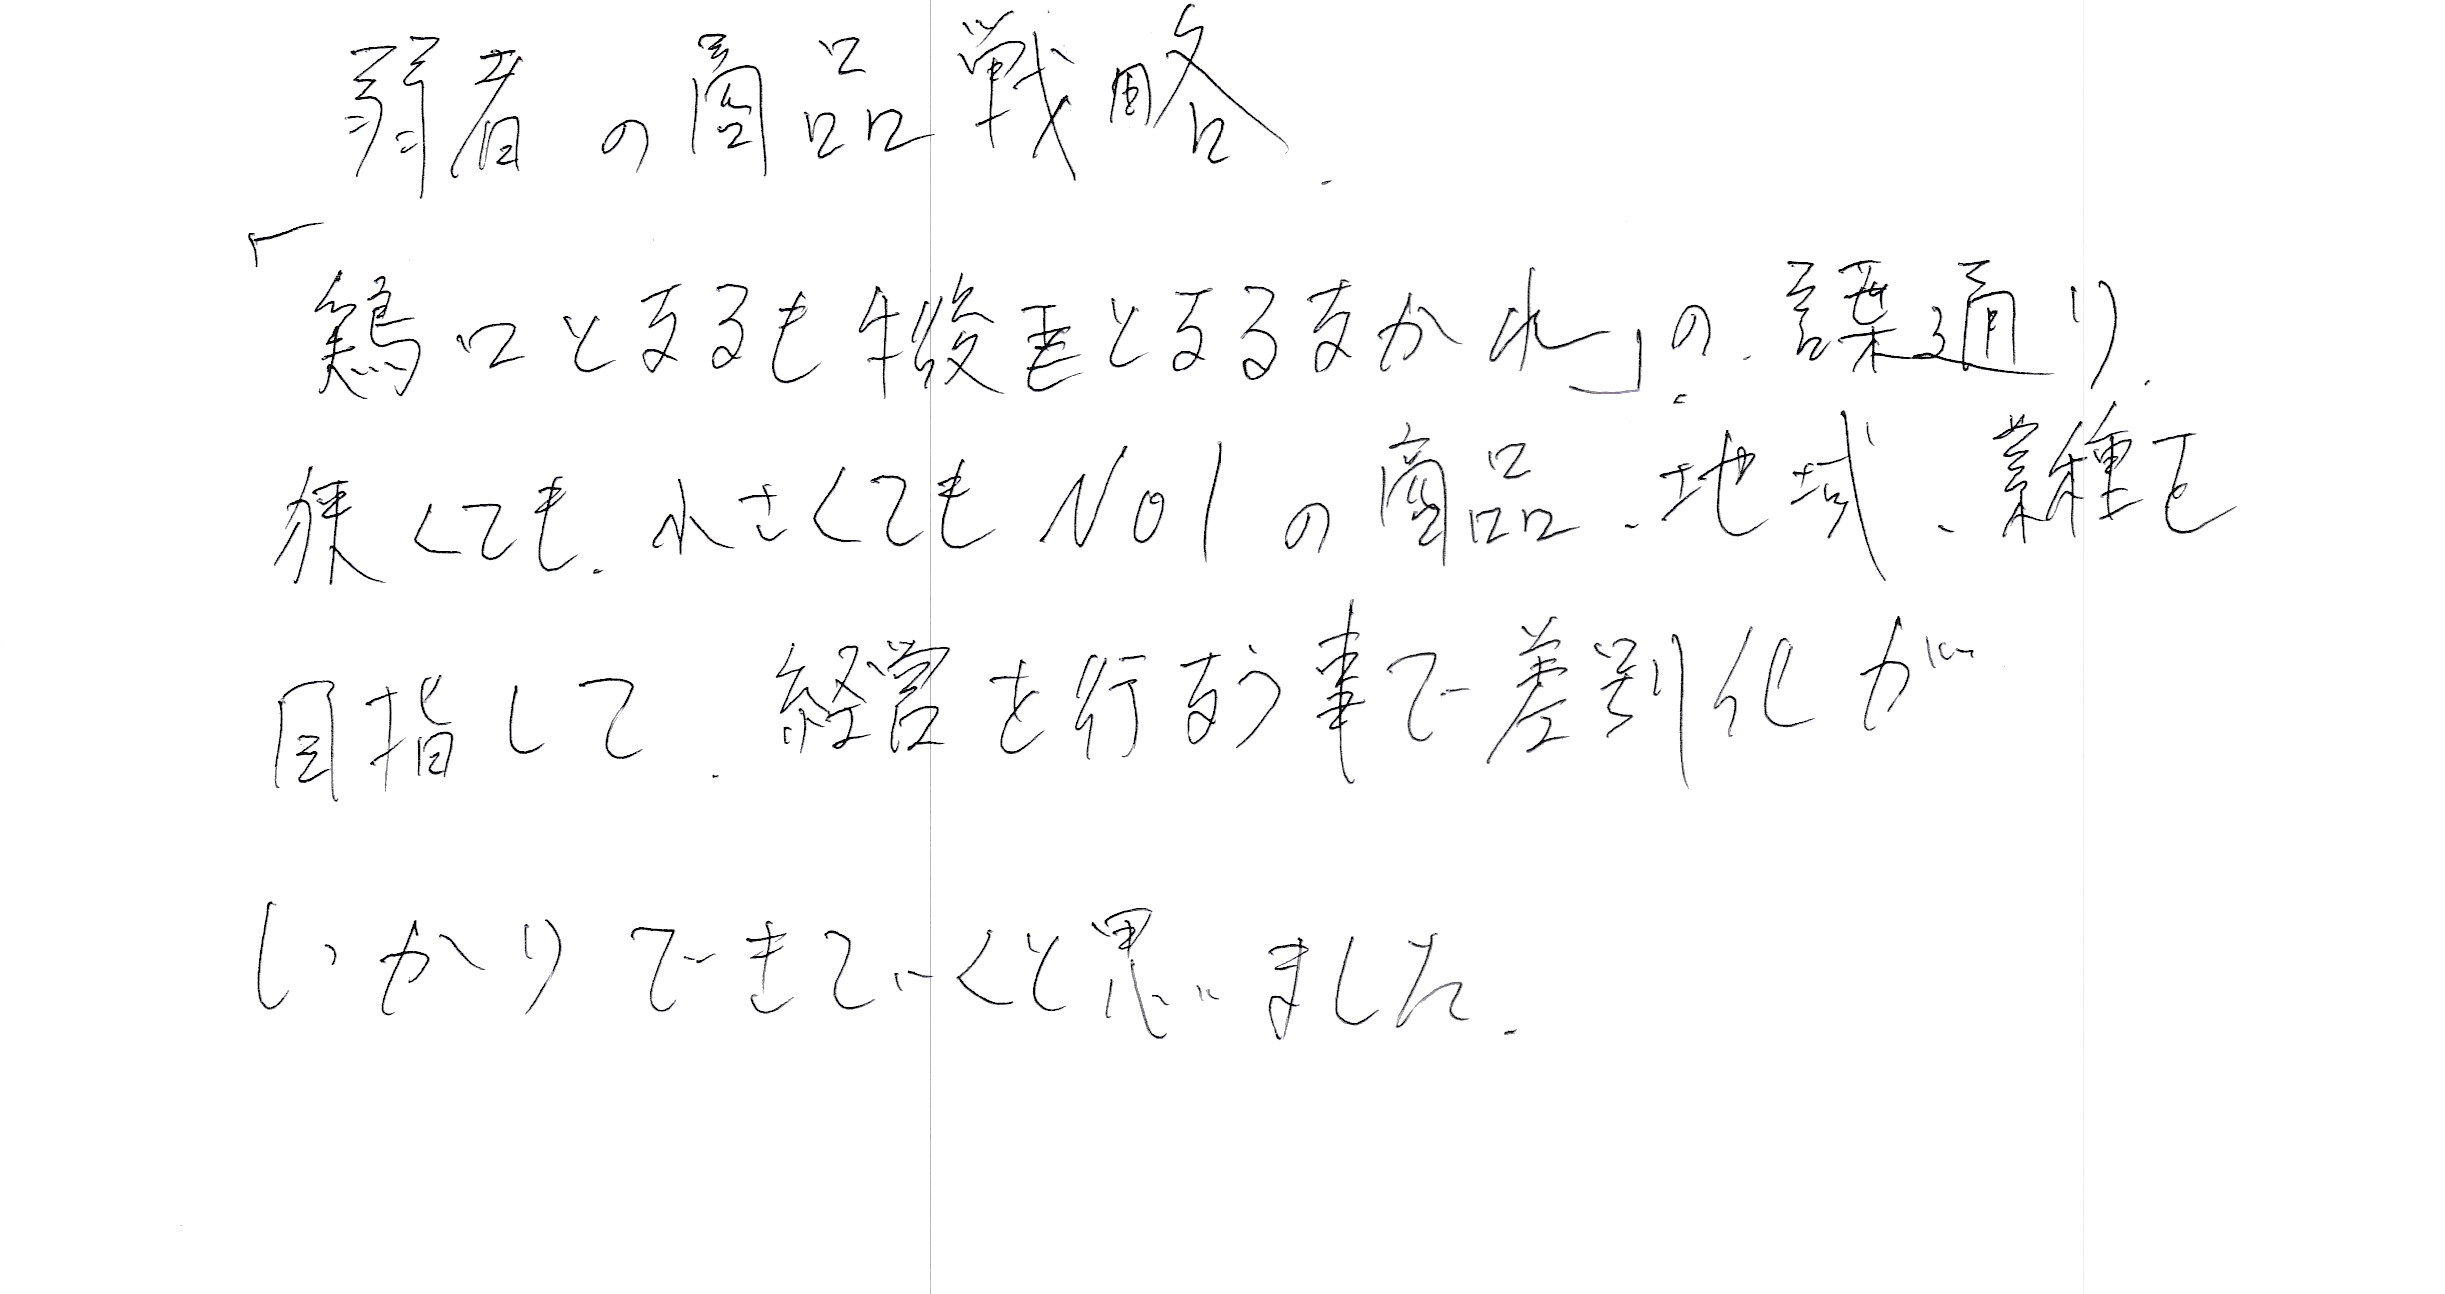 弱者の商品戦略.
「鶏口となるも牛後となるなかれ」の諺通り.
狭くても、小さくてもNO1の商品、地域、業種を
目指して、経営を行なう事で差別化が
しっかりできていくと思いました.